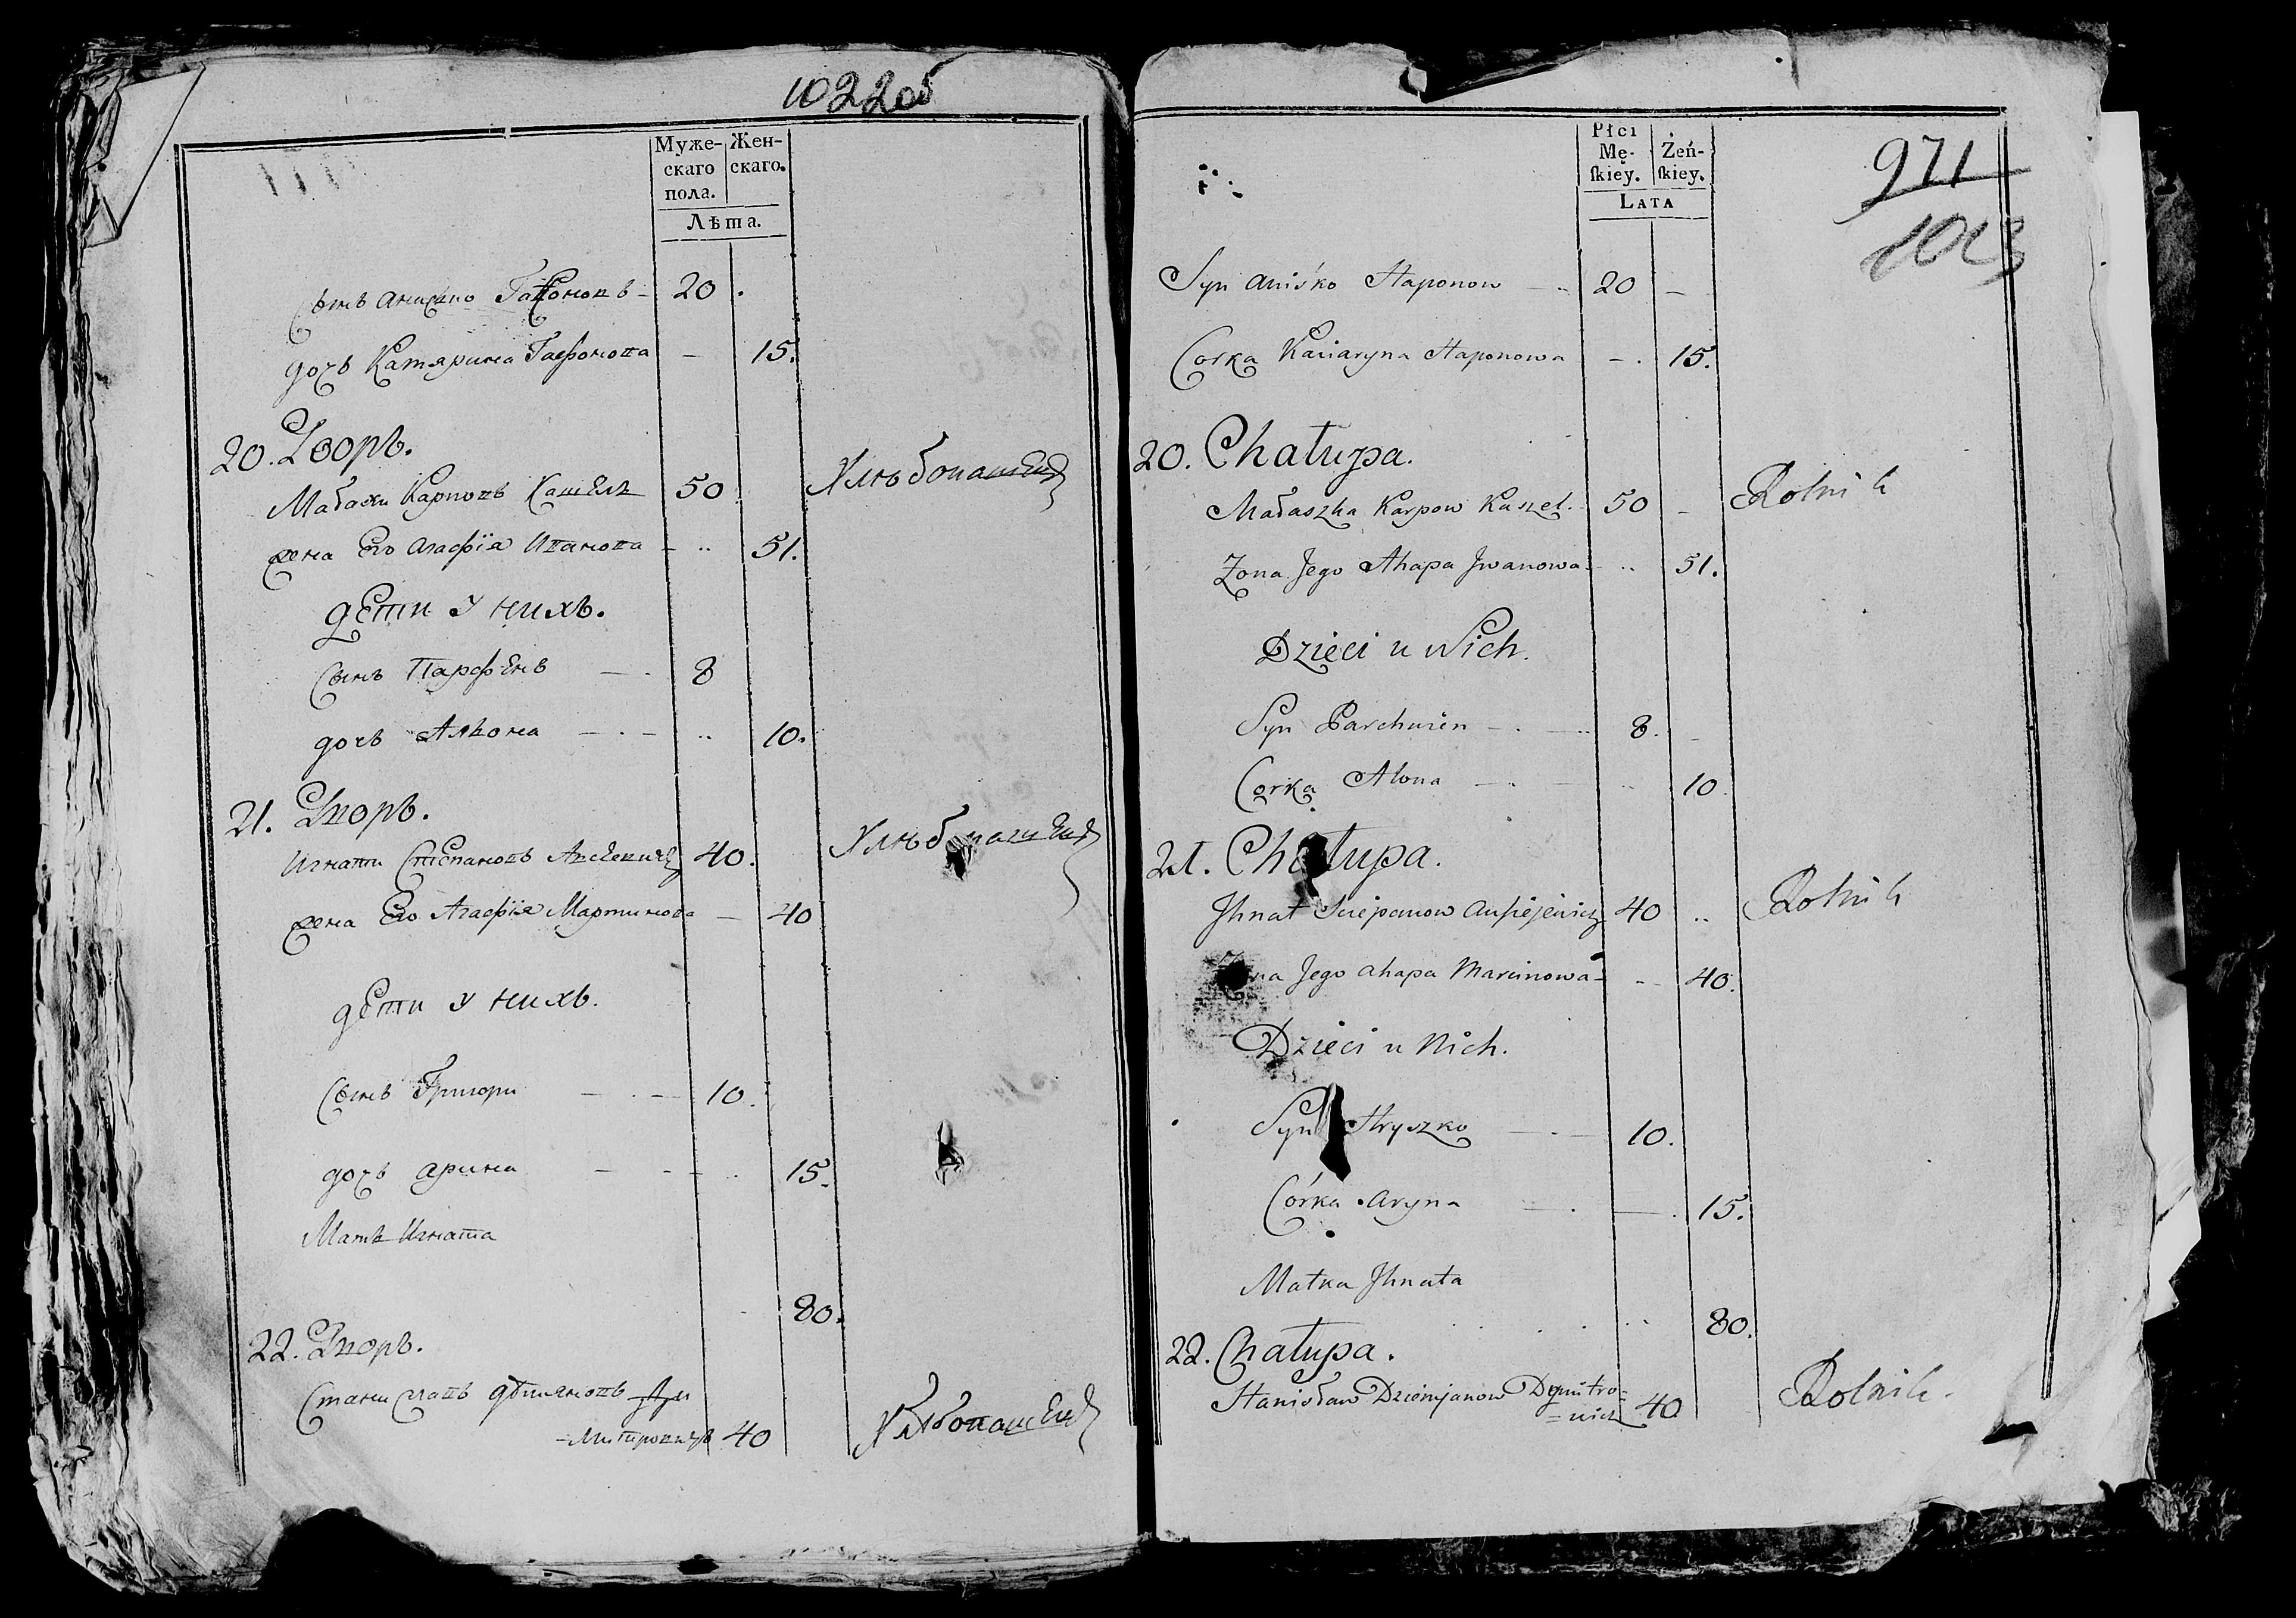 1022об
Муже-
скаго
пола.
Жен-
скаго.
Лѣта.
сынъ Анисько Гапоновъ - 20 .
дочь Катярина Гафонова - 15.
20. Дворъ.
Карповъ Кашель 50 Хлѣбопашецъ
жена Его Агафїя Иванова - .. 51.
дети у нихъ.
сынъ Парфенъ - . 8
дочь Алюона - . - .. 10.
21. Дворъ.
Игнати Степановъ Авсеевичъ 40. Хлѣбопашецъ
жена Его Агафїя Мартинова - 40
дети у нихъ.
сынъ Григори - . - 10.
дочь Арина - - - .. 15.
Мать Игната
80.
22. Дворъ.
Станиславъ Дѣмяновъ Ди
-митровичъ 40 Хлѣбопашецъ
971
1023
Płci
Mę-
ſkiey.
Żeń-
ſkiey.
LATA
Syn Aniśko Haponow - .. 20 -
Corka Kaciaryna Haponowa - . 15.
20. Chałupa.
Karpow Kaszel. 50 - Rolnik
Zona Jego Ahapa Jwanowa - .. 51.
Dzieci u Nich.
Syn Parchwien - . - .. 8. -
Corka Alona - . - .. 10.
21. Chałupa.
Jhnat Sciepanow Ausiejewicz 40 .. Rolnik
Zona Jego Ahapa Marcinowa - .. 40.
Dzieci u Nich.
Syn Hryszko - . - 10.
Córka Aryna - . - . 15.
Matka Jhnata
. . . . .. 80.
22. Chałupa.
Stanisław Dziemjanow Dymitro=
=wicz 40 Rolnik.